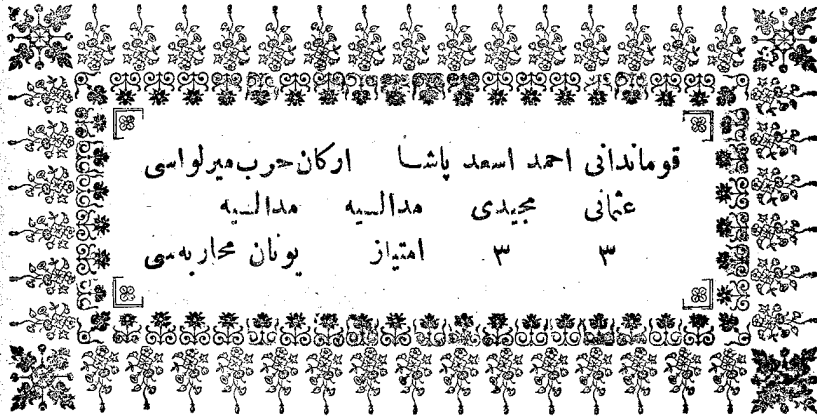 قوماندانی احمد اسعد پاشا ارکان حرب میرلواسی
عثمانی مجیدی مدالیه مدالیه
۳ ۳ امتیاز یونان محاربه سی